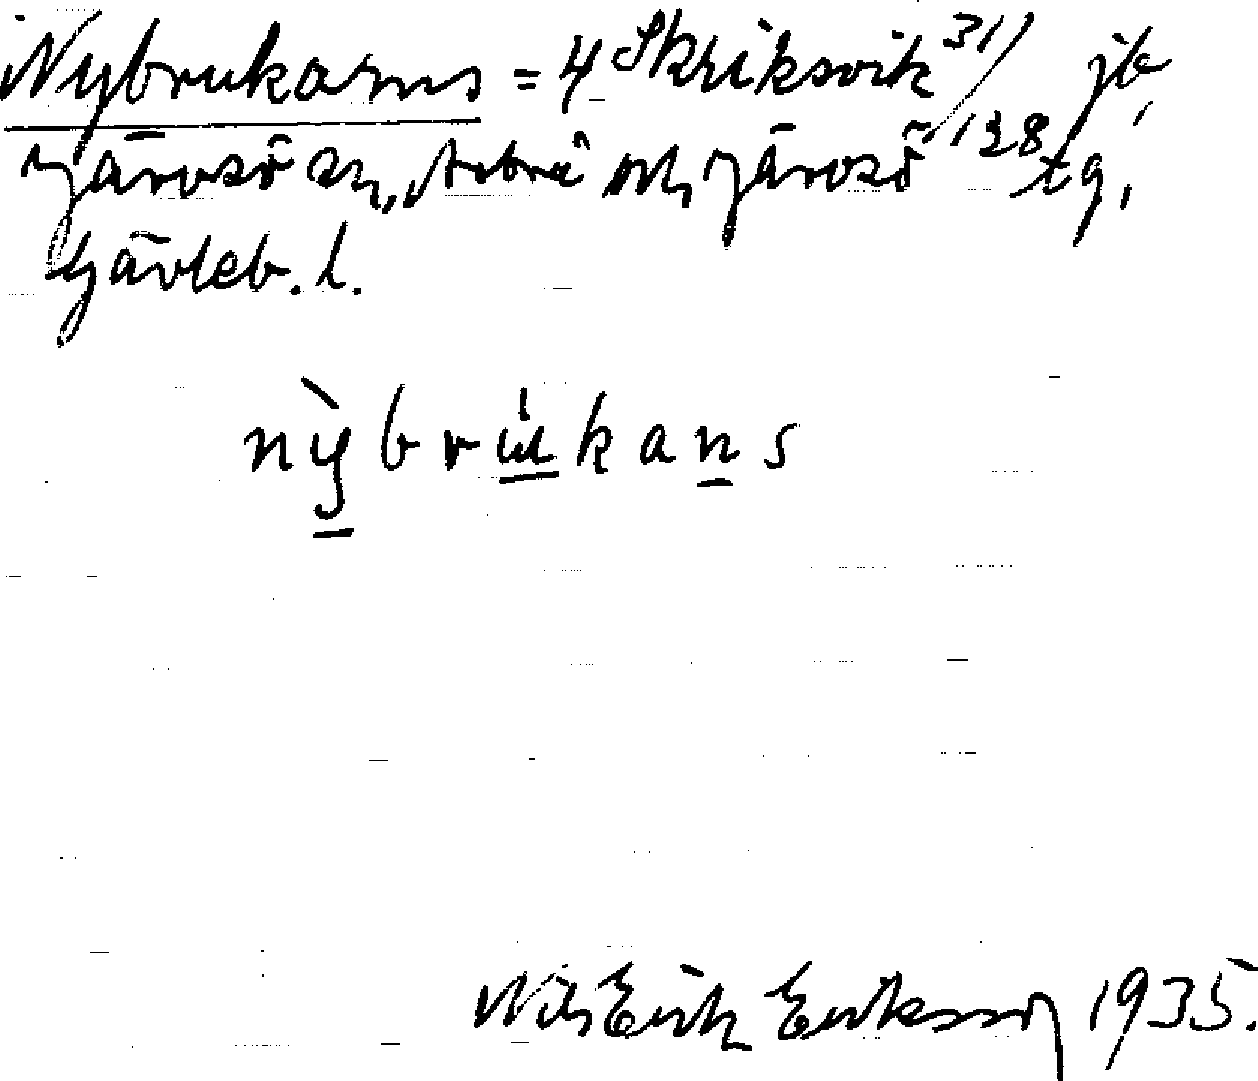 Nybrukarns = 4 Skriksvik 31/128 jb,
Järvsö sn, Arbrå och Järvsö tg,
Gävleb. l.
nỳbrukans
Nils Erik Eriksson 1935.